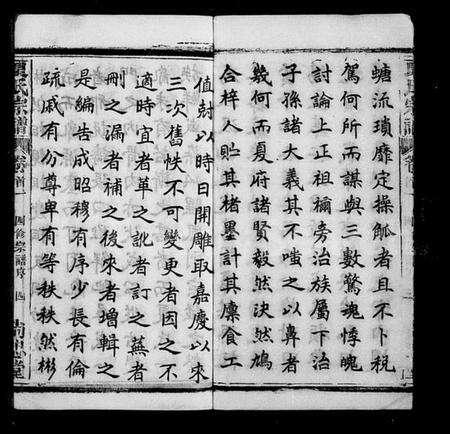 螗流瑣靡定操觚者且不卜税
駕何所而謀與三數驚魂悸魄
討論上正祖禰旁治族屬下治
子孫諸大義其不嗤之以鼻者
幾何而夏府諸賢毅然決然鳩
合梓人貯其楮墨計其廩食工
值尅以時日開雕取嘉慶以來
三次舊帙不可變更者因之不
適時宜者革之訛者訂之蕪者
刪之漏者補之後來者增輯之
是編告成昭穆有序少長有倫
疏戚有份尊卑有等秩秩然彬
夏氏宗譜 卷首一 四修宗譜序 四